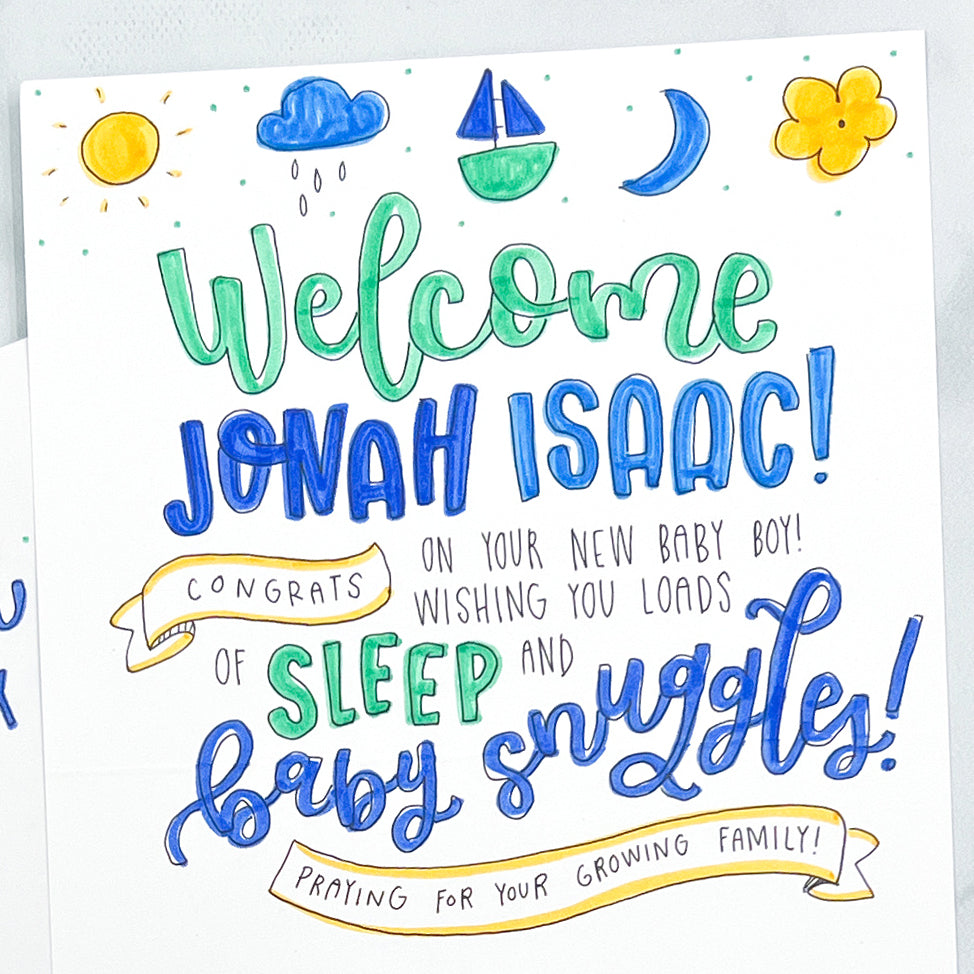 Welcome
JONAH ISAAC!
CONGRATS ON YOUR NEW BABY BOY!
WISHING YOU LOADS
OF SLEEP AND
baby snuggles!
PRAYING FOR YOUR GROWING FAMILY!